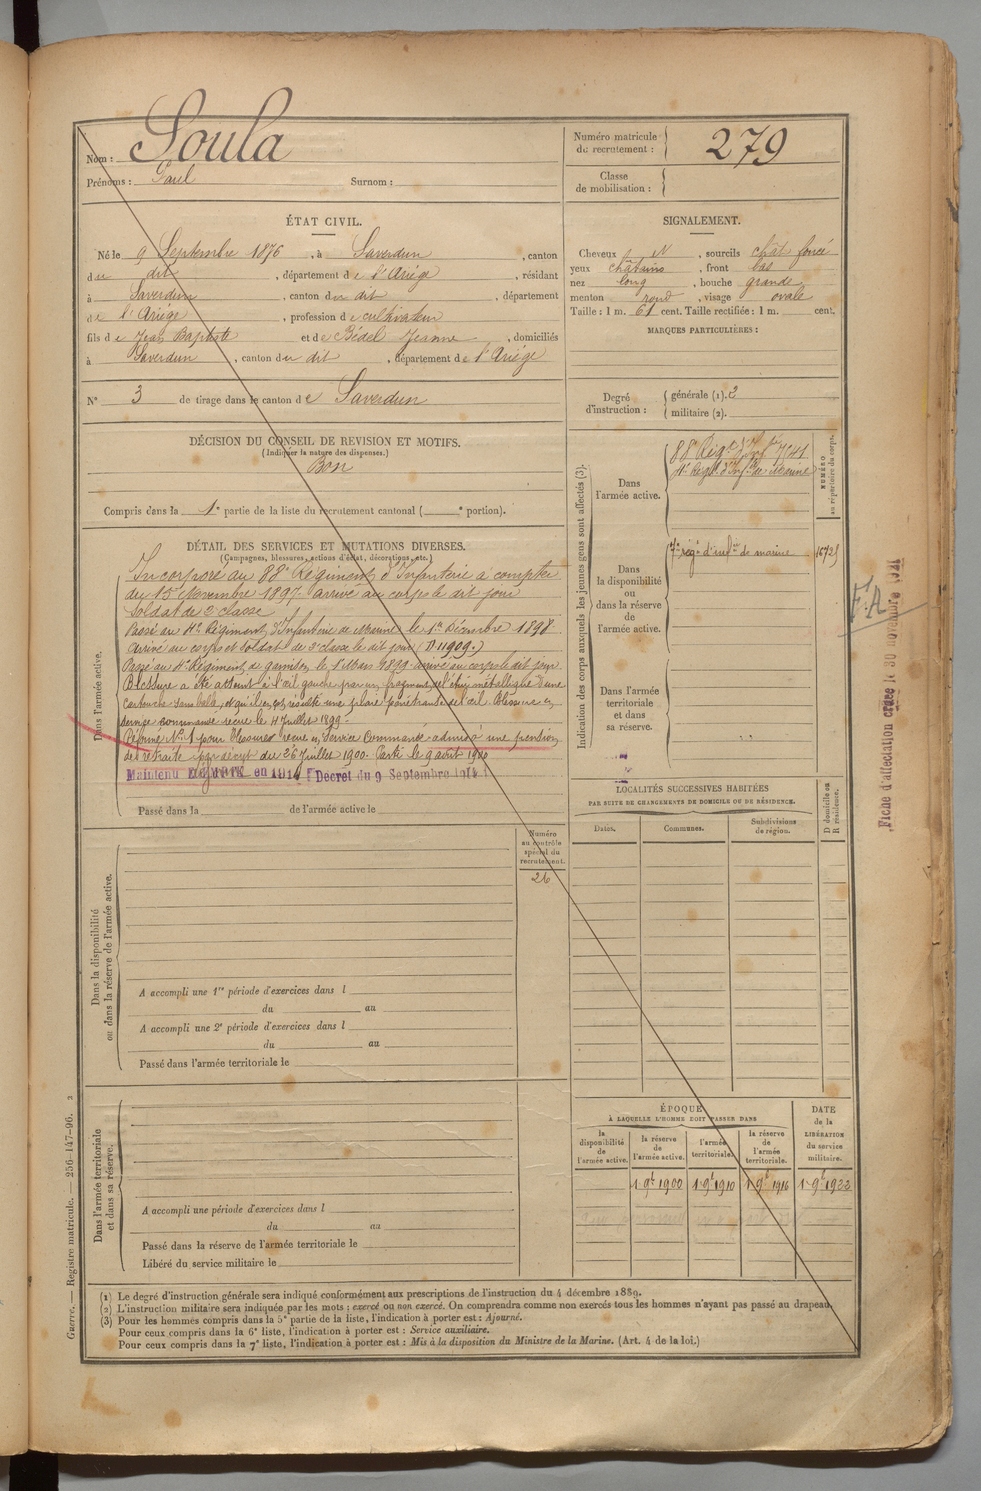 Nom : Soula
Prénoms : Paul Surnom :
Numéro matricule du recrutement : 279
Classe de mobilisation :
ÉTAT CIVIL.
Né le 9 Septembre 1876, à Saverdun, canton
du dit, département de l'Ariége, résidant
à Saverdun, canton du dit, département
de l'Ariége, profession de cultivateur
fils de Jean Baptiste et de Bédel Jeanne, domiciliés
à Saverdun, canton du dit, département de l'Ariége
N° 3 de tirage dans le canton de Saverdun
SIGNALEMENT.
Cheveux N, sourcils chât foncé
yeux châtains, front bas
nez long, bouche grande
menton rond, visage ovale
Taille : 1 m. 61 cent. Taille rectifiée : 1 m. cent.
MARQUES PARTICULIÈRES :
Degré d'instruction : générale (1). 2
militaire (2).
DÉCISION DU CONSEIL DE REVISION ET MOTIFS.
(Indiquer la nature des dispenses.)
Bon
Compris dans la 1e partie de la liste du recrutement cantonal ( e portion).
DÉTAIL DES SERVICES ET MUTATIONS DIVERSES.
(Campagnes, blessures, actions d'éclat, décorations, etc.)
Dans l'armée active.
Incorporé au 88e Régiment d'Infanterie à compter
du 15 Novembre 1897. arrivé au corps le dit jour
soldat de 2e classe
Passé au 11e Régiment d'Infanterie de Marine le 1er Décembre 1898
Arrivé au corps et soldat de 2e classe le dit jour (N° 11909.)
Passé au 4e Régiment de le 1 Mars 1899 arrivé au corps le dit jour
Blessure a été atteint à l'œil gauche par un fragment de l'étui métallique d'une
cartouche sans balle, et qu'il en est résulté une plaie pénétrante de l'œil. Blessure en
service commandé reçue le 4 Juillet 1899.
Réformé N° 1 pour blessures reçues en Service Commandé admis à une pension
de retraite par décret du 26 Juillet 1900. Parti le 9 août 1900
Maintenu EXEMPTÉ en 1914 (Décret du 9 Septembre 1914)
Passé dans la de l'armée active le
Indication des corps auxquels les jeunes gens sont affectés (3).
Dans l'armée active.
88e Régt d'Inf. 7041
11e Régt d'Infie de Marine
NUMÉRO au répertoire du corps.
Dans la disponibilité ou dans la réserve de l'armée active.
7e régt d'infie de marine
Dans l'armée territoriale et dans sa réserve.
F.A
Fiche d'affectation créée le 30 novembre
LOCALITÉS SUCCESSIVES HABITÉES
PAR SUITE DE CHANGEMENTS DE DOMICILE OU DE RÉSIDENCE.
Dates. Communes. Subdivisions de région. D domicile ou R résidence.
Numéro au contrôle spécial du recrutement.
26
Dans la disponibilité ou dans la réserve de l'armée active.
A accompli une 1re période d'exercices dans l
du au
A accompli une 2e période d'exercices dans l
du au
Passé dans l'armée territoriale le
ÉPOQUE
À LAQUELLE L'HOMME DOIT PASSER DANS
la disponibilité de l'armée active.
la réserve de l'armée active.
l'armée territoriale.
la réserve de l'armée territoriale.
DATE de la LIBÉRATION du service militaire.
1 9e 1900 1 9e 1910 1 9e 1916 1 9e 1922
Dans l'armée territoriale et dans sa réserve.
A accompli une période d'exercices dans l
du au
Passé dans la réserve de l'armée territoriale le
Libéré du service militaire le
Guerre. — Registre matricule. — 256-147-96. 2
(1) Le degré d'instruction générale sera indiqué conformément aux prescriptions de l'instruction du 4 décembre 1889.
(2) L'instruction militaire sera indiquée par les mots : exercé ou non exercé. On comprendra comme non exercés tous les hommes n'ayant pas passé au drapeau.
(3) Pour les hommes compris dans la 5e partie de la liste, l'indication à porter est : Ajourné.
Pour ceux compris dans la 6e liste, l'indication à porter est : Service auxiliaire.
Pour ceux compris dans la 7e liste, l'indication à porter est : Mis à la disposition du Ministre de la Marine. (Art. 4 de la loi.)